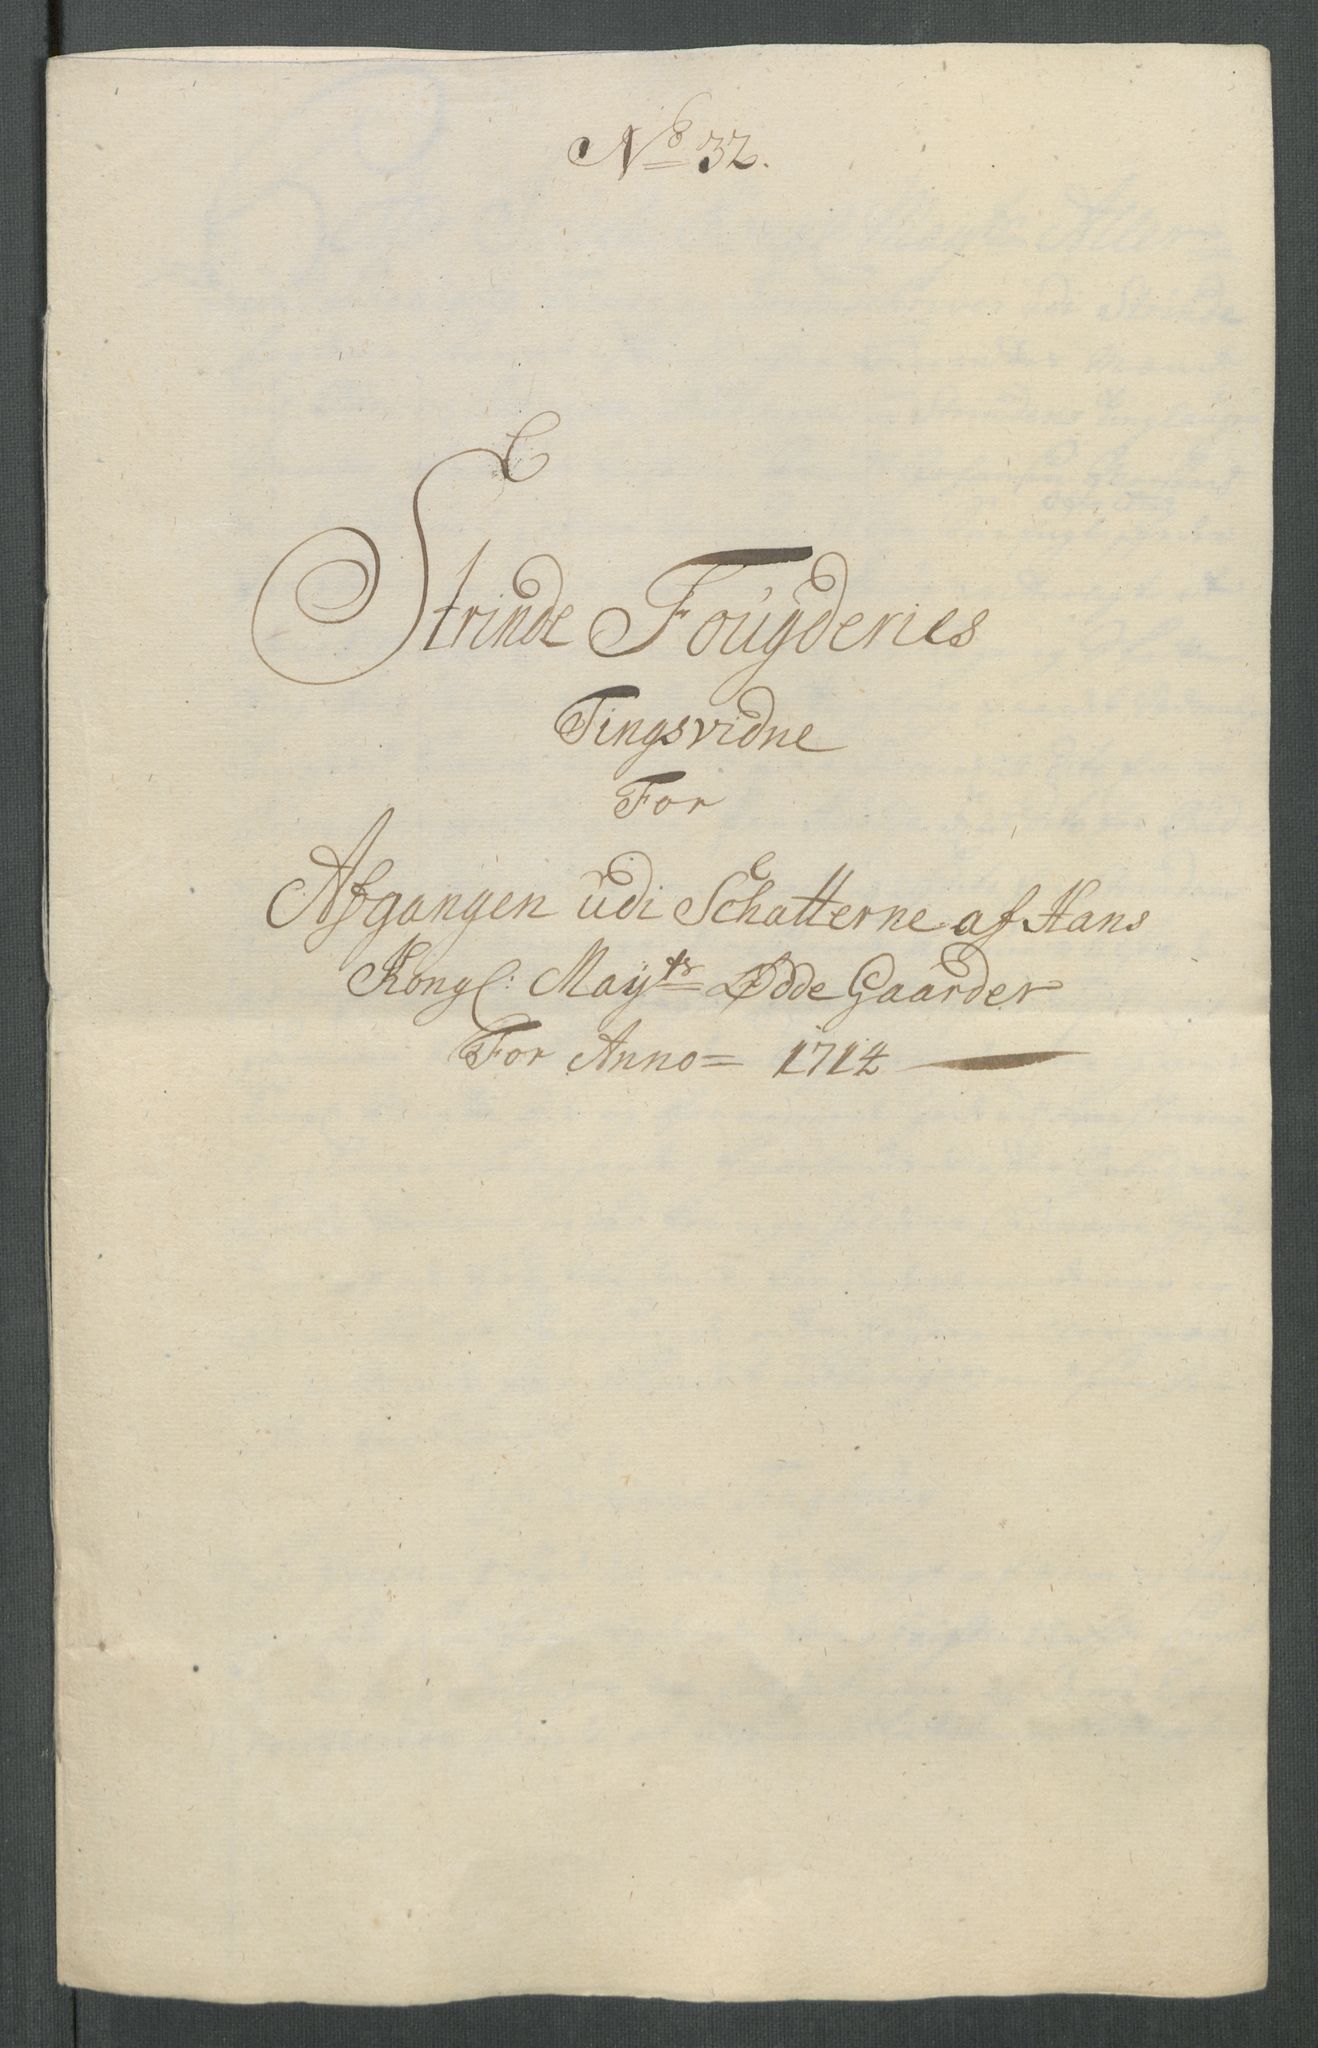 No 32.
Strinde Foùgderies
Tingsvidne
For
Afgangen ùdi Schatterne af Hans
Kongl: Mayts Ødde Gaarder
For Anno= 1714